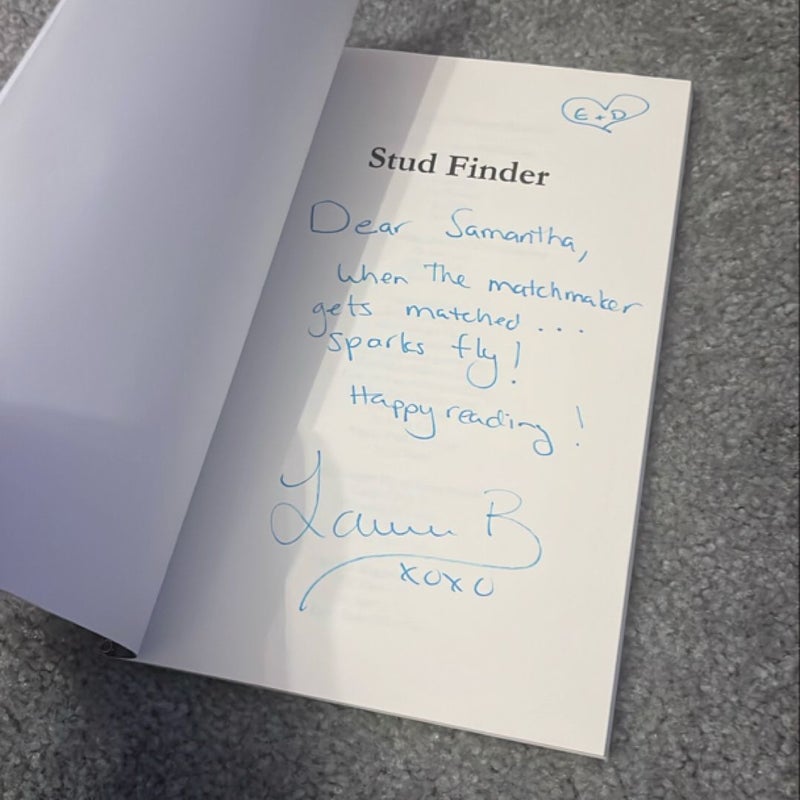 E + D
Stud Finder
Dear Samantha,
When the matchmaker
gets matched...
sparks fly!
Happy reading!
Lauren B
xoxo